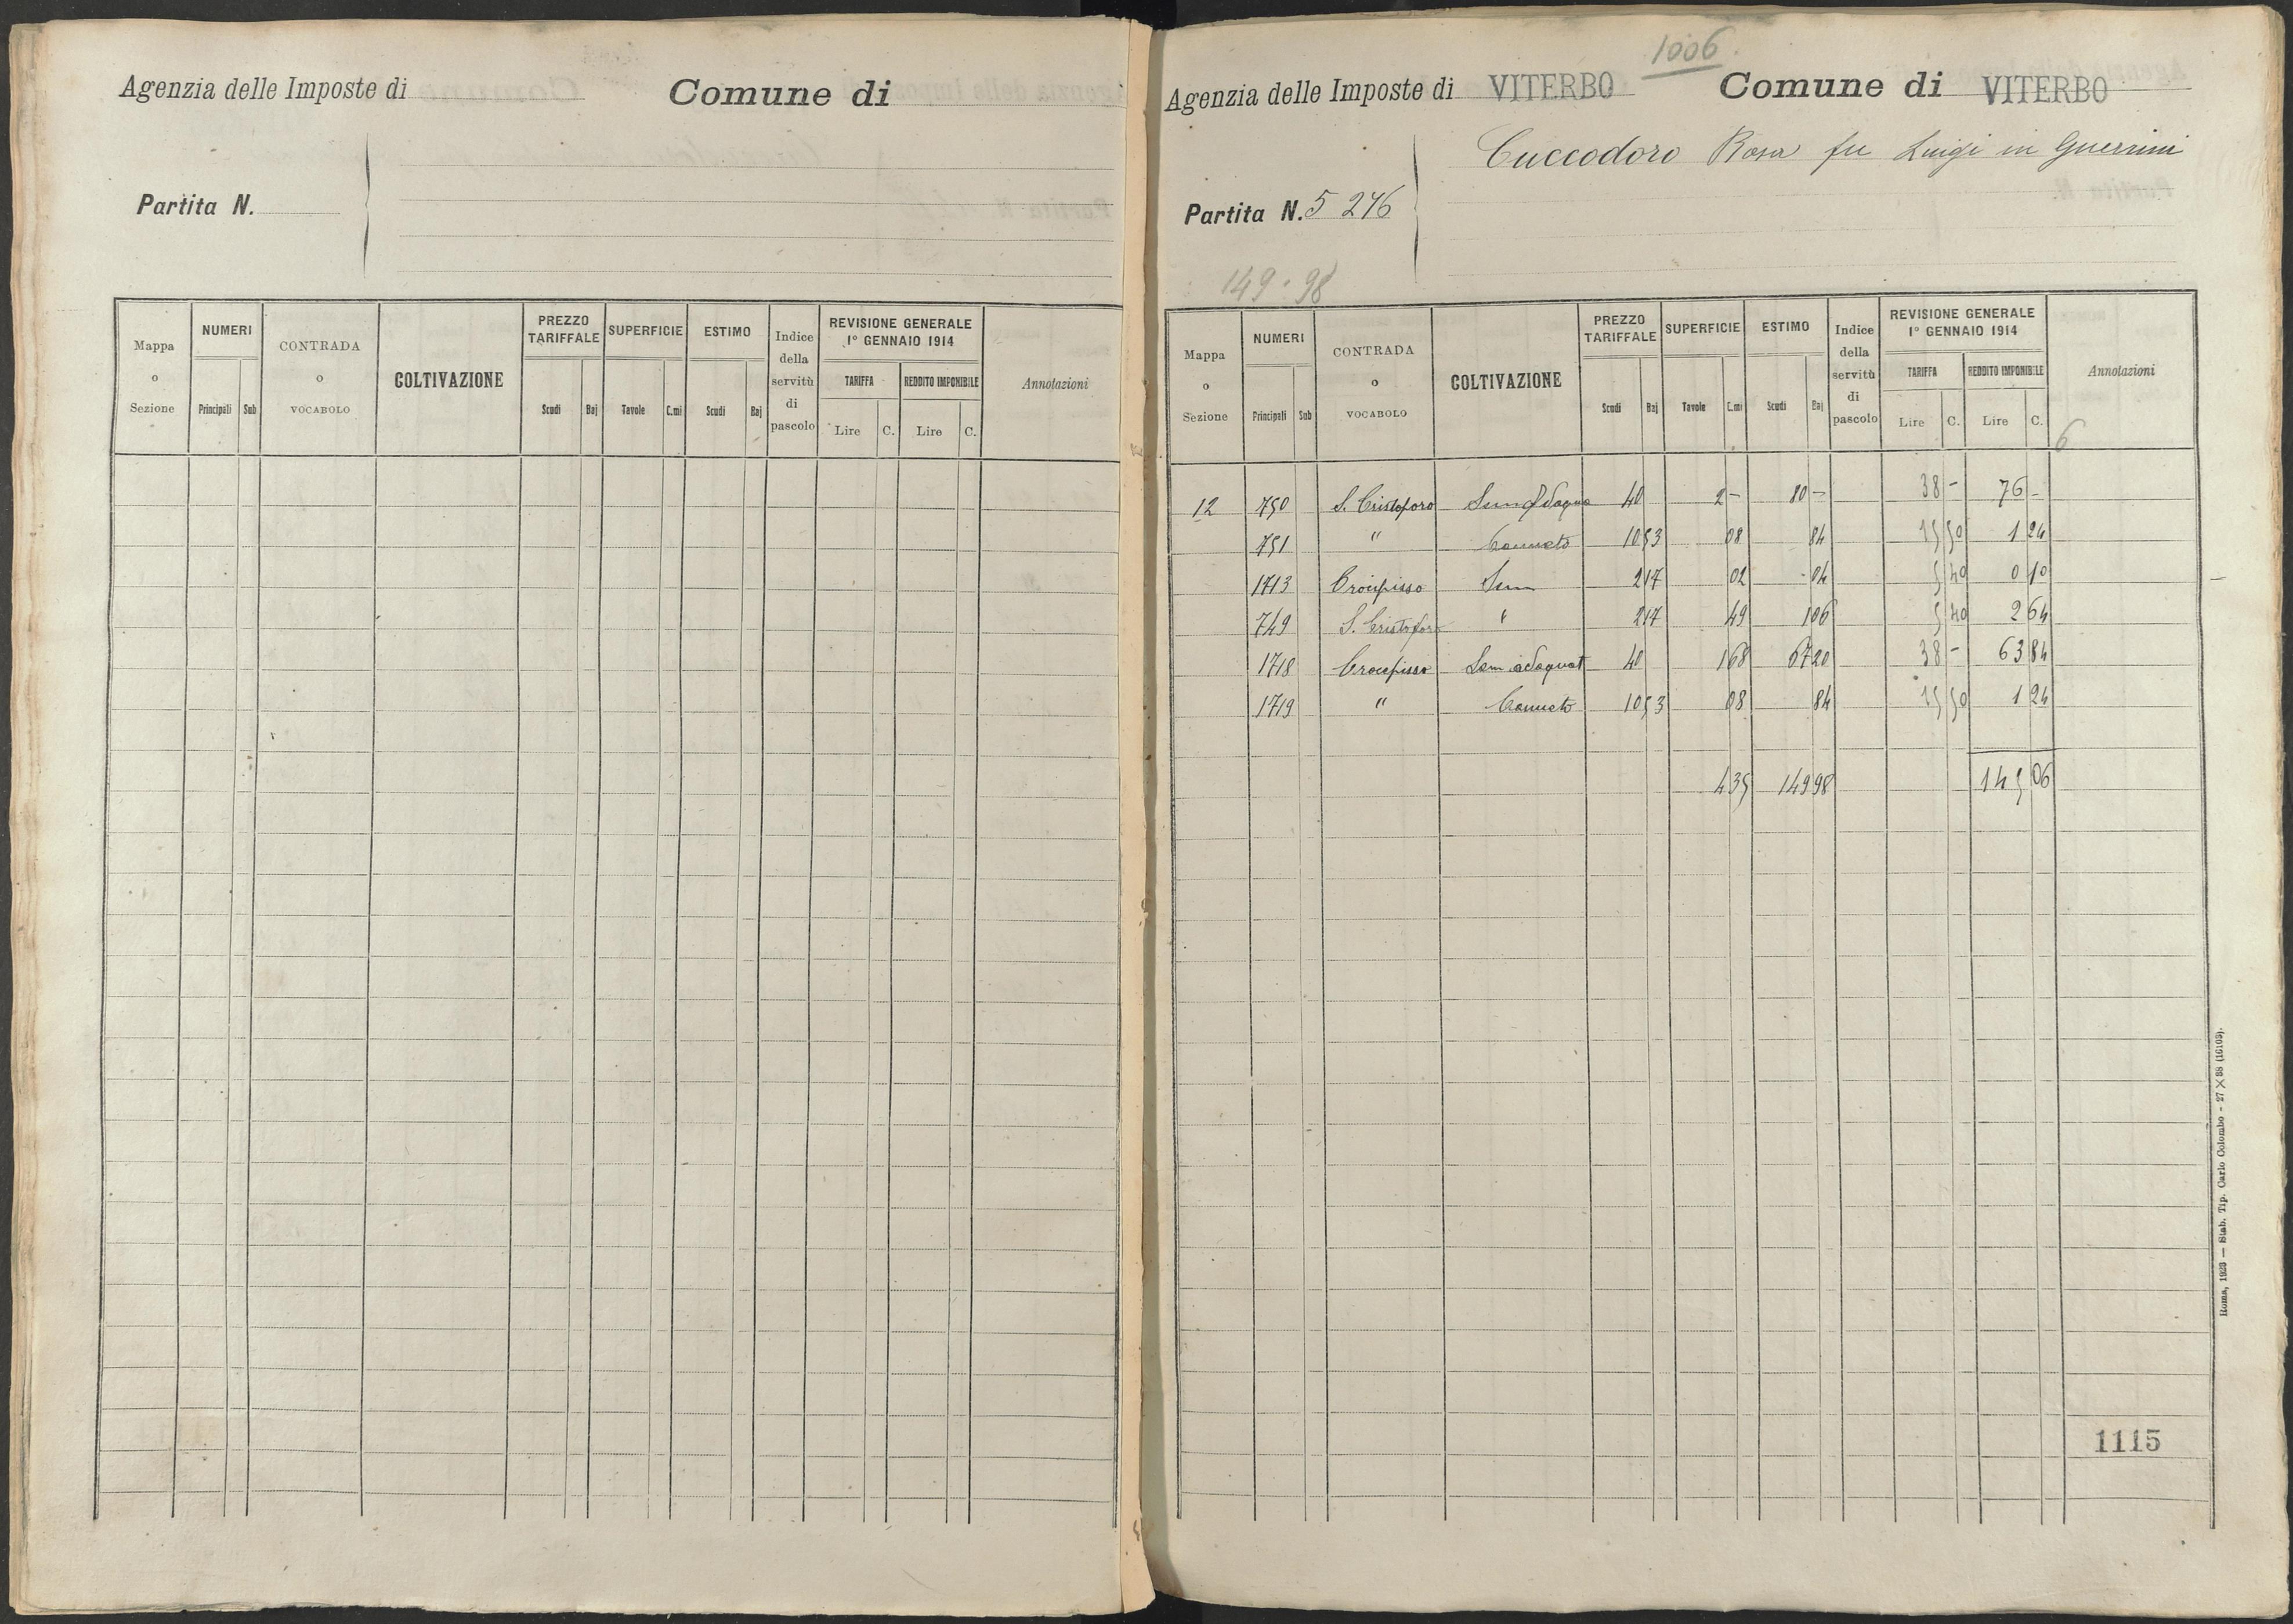 Agenzia delle Imposte di Comune di
Partita N.
Mappa o Sezione NUMERI Principali Sub CONTRADA o VOCABOLO COLTIVAZIONE PREZZO TARIFFALE Scudi Baj SUPERFICIE Tavole C.mi ESTIMO Scudi Baj Indice della servitù di pascolo REVISIONE GENERALE 1° GENNAIO 1914 TARIFFA Lire C. REDDITO IMPONIBILE Lire C. Annotazioni
1006
Agenzia delle Imposte di VITERBO Comune di VITERBO
Cuccodoro Rosa fu Luigi in Guerrini
Partita N. 5276
149.98
Mappa o Sezione NUMERI Principali Sub CONTRADA o VOCABOLO COLTIVAZIONE PREZZO TARIFFALE Scudi Baj SUPERFICIE Tavole C.mi ESTIMO Scudi Baj Indice della servitù di pascolo REVISIONE GENERALE 1° GENNAIO 1914 TARIFFA Lire C. REDDITO IMPONIBILE Lire C. Annotazioni
6
12 750 S. Cristoforo 40 2 - 80 - 38 - 76 -
751 " Canneto 10 53 08 84 15 50 1 24
1713 Crocifisso Sem 2 17 02 - 04 5 40 0 10
749 S. Cristofor " 2 17 49 1 06 5 40 2 64
1718 Crocifisso Sem adaquat 40 1 68 67 20 38 - 63 84
1719 " Canneto 10 53 08 84 15 50 1 24
4 35 149 98 145 06
1115
Roma, 1923 — Stab. Tip. Carlo Colombo - 27 × 38 (16103).